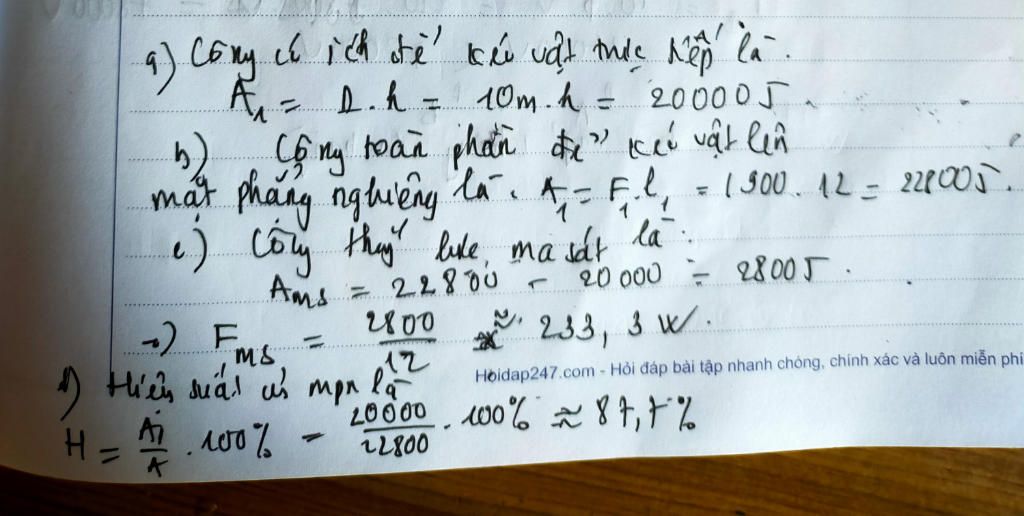 a) Công có ích để kéo vật trực tiếp là.
A₁ = P.h = 10m.h = 20000J.
b) Công toàn phần để kéo vật lên
mặt phẳng nghiêng là. A₁ = F₁.l₁ = 1900.12 = 22800J.
c) Công thắng lực ma sát là:
Ams = 22800 - 20000 = 2800J.
→) Fms = 2800/12 ≈ 233,3 W.
Hoidap247.com - Hỏi đáp bài tập nhanh chóng, chính xác và luôn miễn phí
d) Hiệu suất của mpn là
H = A₁/A . 100% = 20000/22800 . 100% ≈ 87,7%